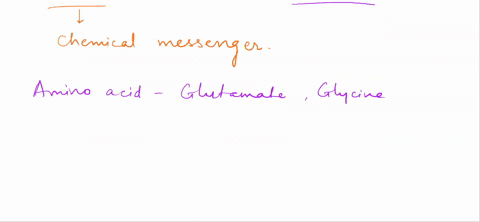 Chemical messenger.
Amino acid - Glutamate, Glycine